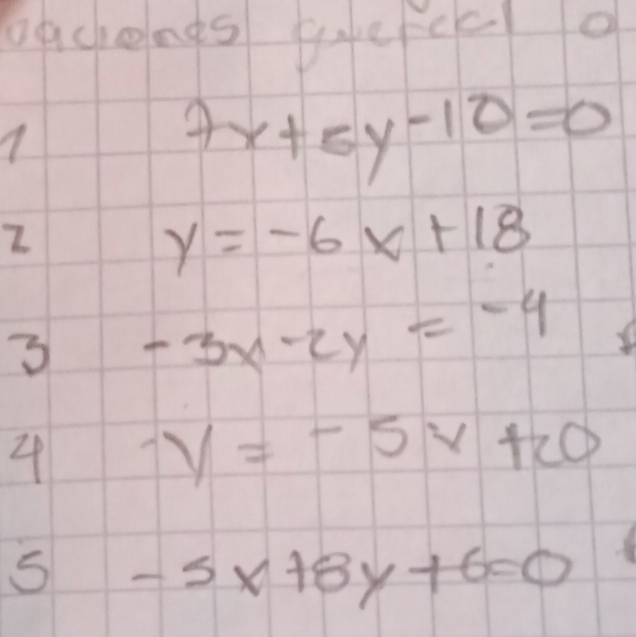 1 7x+5y-10=0
2 y=-6x+18
3 -3x-2y=-4
4 -y=-5x+20
5 -5x+8y+6=0